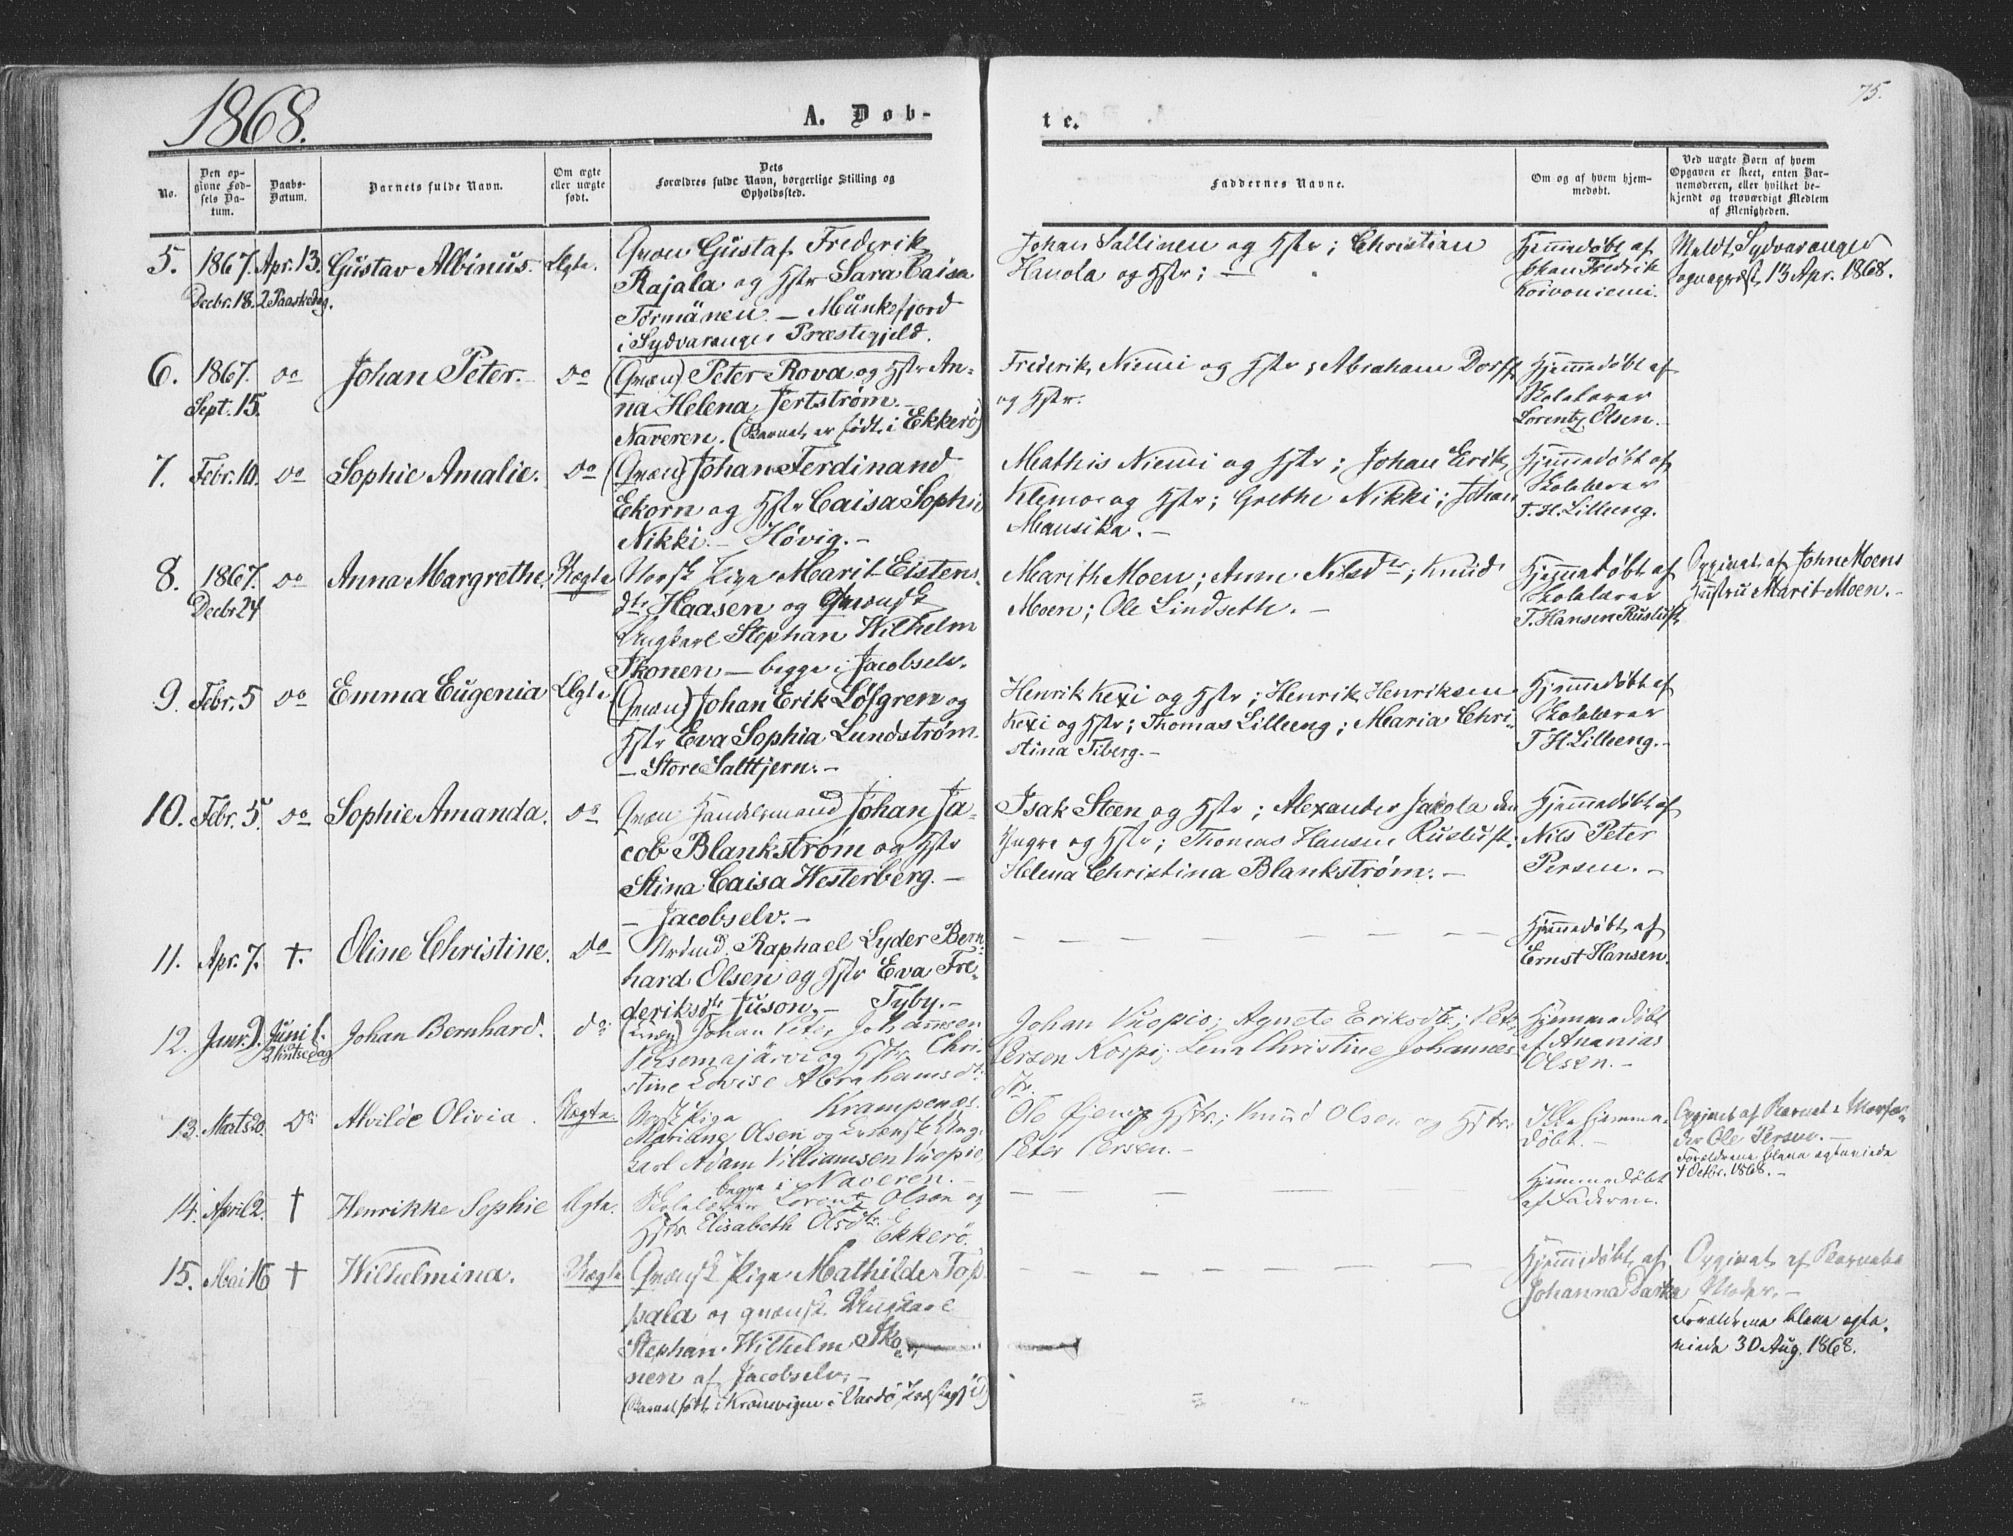 1868.
A. Døb-
te.
75.
No.
Den op-
givne Fød-
sels Da-
tum.
Daabs-
Datum.
Barnets fulde Navn.
Om ægte
eller uægte
født.
Dets
Forældres fulde Navn, borgerlige Stilling og
Opholdssted.
Faddernes Navne.
Om og af hvem hjem-
medøbt.
Ved uægte Børn af hvem
Opgaven er skeet, enten Bar-
nemoderen, eller hvilket be-
kjendt og troværdigt Medlem
af Menigheden.
5. 1867. Apr. 13. Gustav Albinus. Ægte. Qvæn Gustaf Frederik
Decbr. 18. 2 Paaskedag.
Rajala og Hstr Sara Caisa
Tormänen. — Munkefjord
i Sydvaranger Præstegjeld.
Johan Sallinen og Hstr; Christian
Hanola og Hstr; —
Hjemmedøbt af
Johan Fredrik
Koivoniemi.
Meldt Sydvaranger
Sognepræst 13 Apr. 1868.
6. 1867. do Johan Peter. do (Qvæn) Peter Rova og Hstr An-
Sept. 15.
na Helena Jertstrøm. —
Naveren. (Barnet er født i Ekkerø)
Frederik Niemi og Hstr; Abraham Dorff
og Hstr.
Hjemmedøbt af
Skolelærer
Lorentz Olsen. —
7. Febr. 10. do Sophie Amalie. do (Qvæn) Johan Ferdinand
Ekorn og Hstr Caisa Sophie
Nikki. — Høvig. —
Mathis Niemi og Hstr; Johan Erik
Klemo og Hstr; Grethe Nikki; Johan
Mausika. —
Hjemmedøbt af
Skolelærer
T. H. Lilleeng.
8. 1867. do Anna Margrethe. Uægte Norsk Pige Marit Eistens-
Decbr 24
dtr Haasen og Qvænsk
Ungkarl Stephan Wilhelm
Skonen — begge i Jacobselv.
Marith Moen; Anne Nilsdtr; Knud
Moen; Ole Lindseth. —
Hjemmedøbt af
Skolelærer
T. Hansen Rustuft
Opgivet af John Moens
Hustru Marit Moen. —
9. Febr. 5 do Emma Eugenia Ægte (Qvæn) Johan Erik Löfgren og
Hstr Eva Sophia Lundstrøm.
— Store Salttjern. —
Henrik Kexi og Hstr; Henrik Henriksen
Kexi og Hstr; Thomas Lilleeng; Maria Chri-
stina Tiberg. —
Hjemmedøbt af
Skolelærer
T H Lilleeng. —
10. Febr. 5. do Sophie Amanda. do Qvæn Handelsmand Johan Ja-
cob Blankstrøm og Hstr
Stina Caisa Westerberg. —
— Jacobselv. —
Isak Steen og Hstr; Alexander Jakola den
Yngre og Hstr; Thomas Hansen Rustuft;
Helena Christina Blankstrøm. —
Hjemmedøbt af
Nils Peter
Persen. —
11. Apr. 7. †. Oline Christine. do
Raphael Lyder Bern-
hard Olsen og Hstr Eva Fre-
deriksdtr Juson. — Tyby. —
Hjemmedøbt af
Ernst Hansen.
12. Janr. 9. Juni 1. Johan Bernhard. do (Qvæn) Johan Peter Johannsen
2 Pintsedag
Torsomajärvi og Hstr Chri-
stine Lovise Abrahamsdtr
Krampenæs.
Johan Vuopio; Agnete Eriksdtr; Peter
Persen Korpi; Lena Christine Johannes-
dtr.
Hjemmedøbt
af Ananias
Olsen. —
13. Marts 20. do Alvilde Olivia. Uægte. Norsk Pige
Mariane Olsen og Kvænsk Ung-
karl Adam Villiamsen Vuopio,
begge i Naveren. —
Ole Øjen og Hstr; Knud Olsen og Hstr.
Peter Persen. —
Ikke hjemme-
døbt. —
Opgivet af Barnets Morfa-
der Ole Persen. —
Forældrene bleve ægteviede
4 Octbr. 1868. —
14. April 2. † Henrikke Sophie Ægte. Skolelærer Lorentz Olsen og
Hstr. Elisabeth Olsdtr.
Ekkerø.
Hjemmedøbt
af Faderen.
15. Mai 16 † Wilhelmina. Uægte Qvænsk Pige Mathilde Top-
pala og qvænsk Ungkarl
Stephan Wilhelm Sko-
nen af Jacobselv. —
(Barnet født i Kramvigen i Vardø Præstegj.)
Hjemmedøbt af
Johanna Parka
Opgivet af Barnets
Moder. —
Forældrene bleve ægte-
viede 30 Aug. 1868.